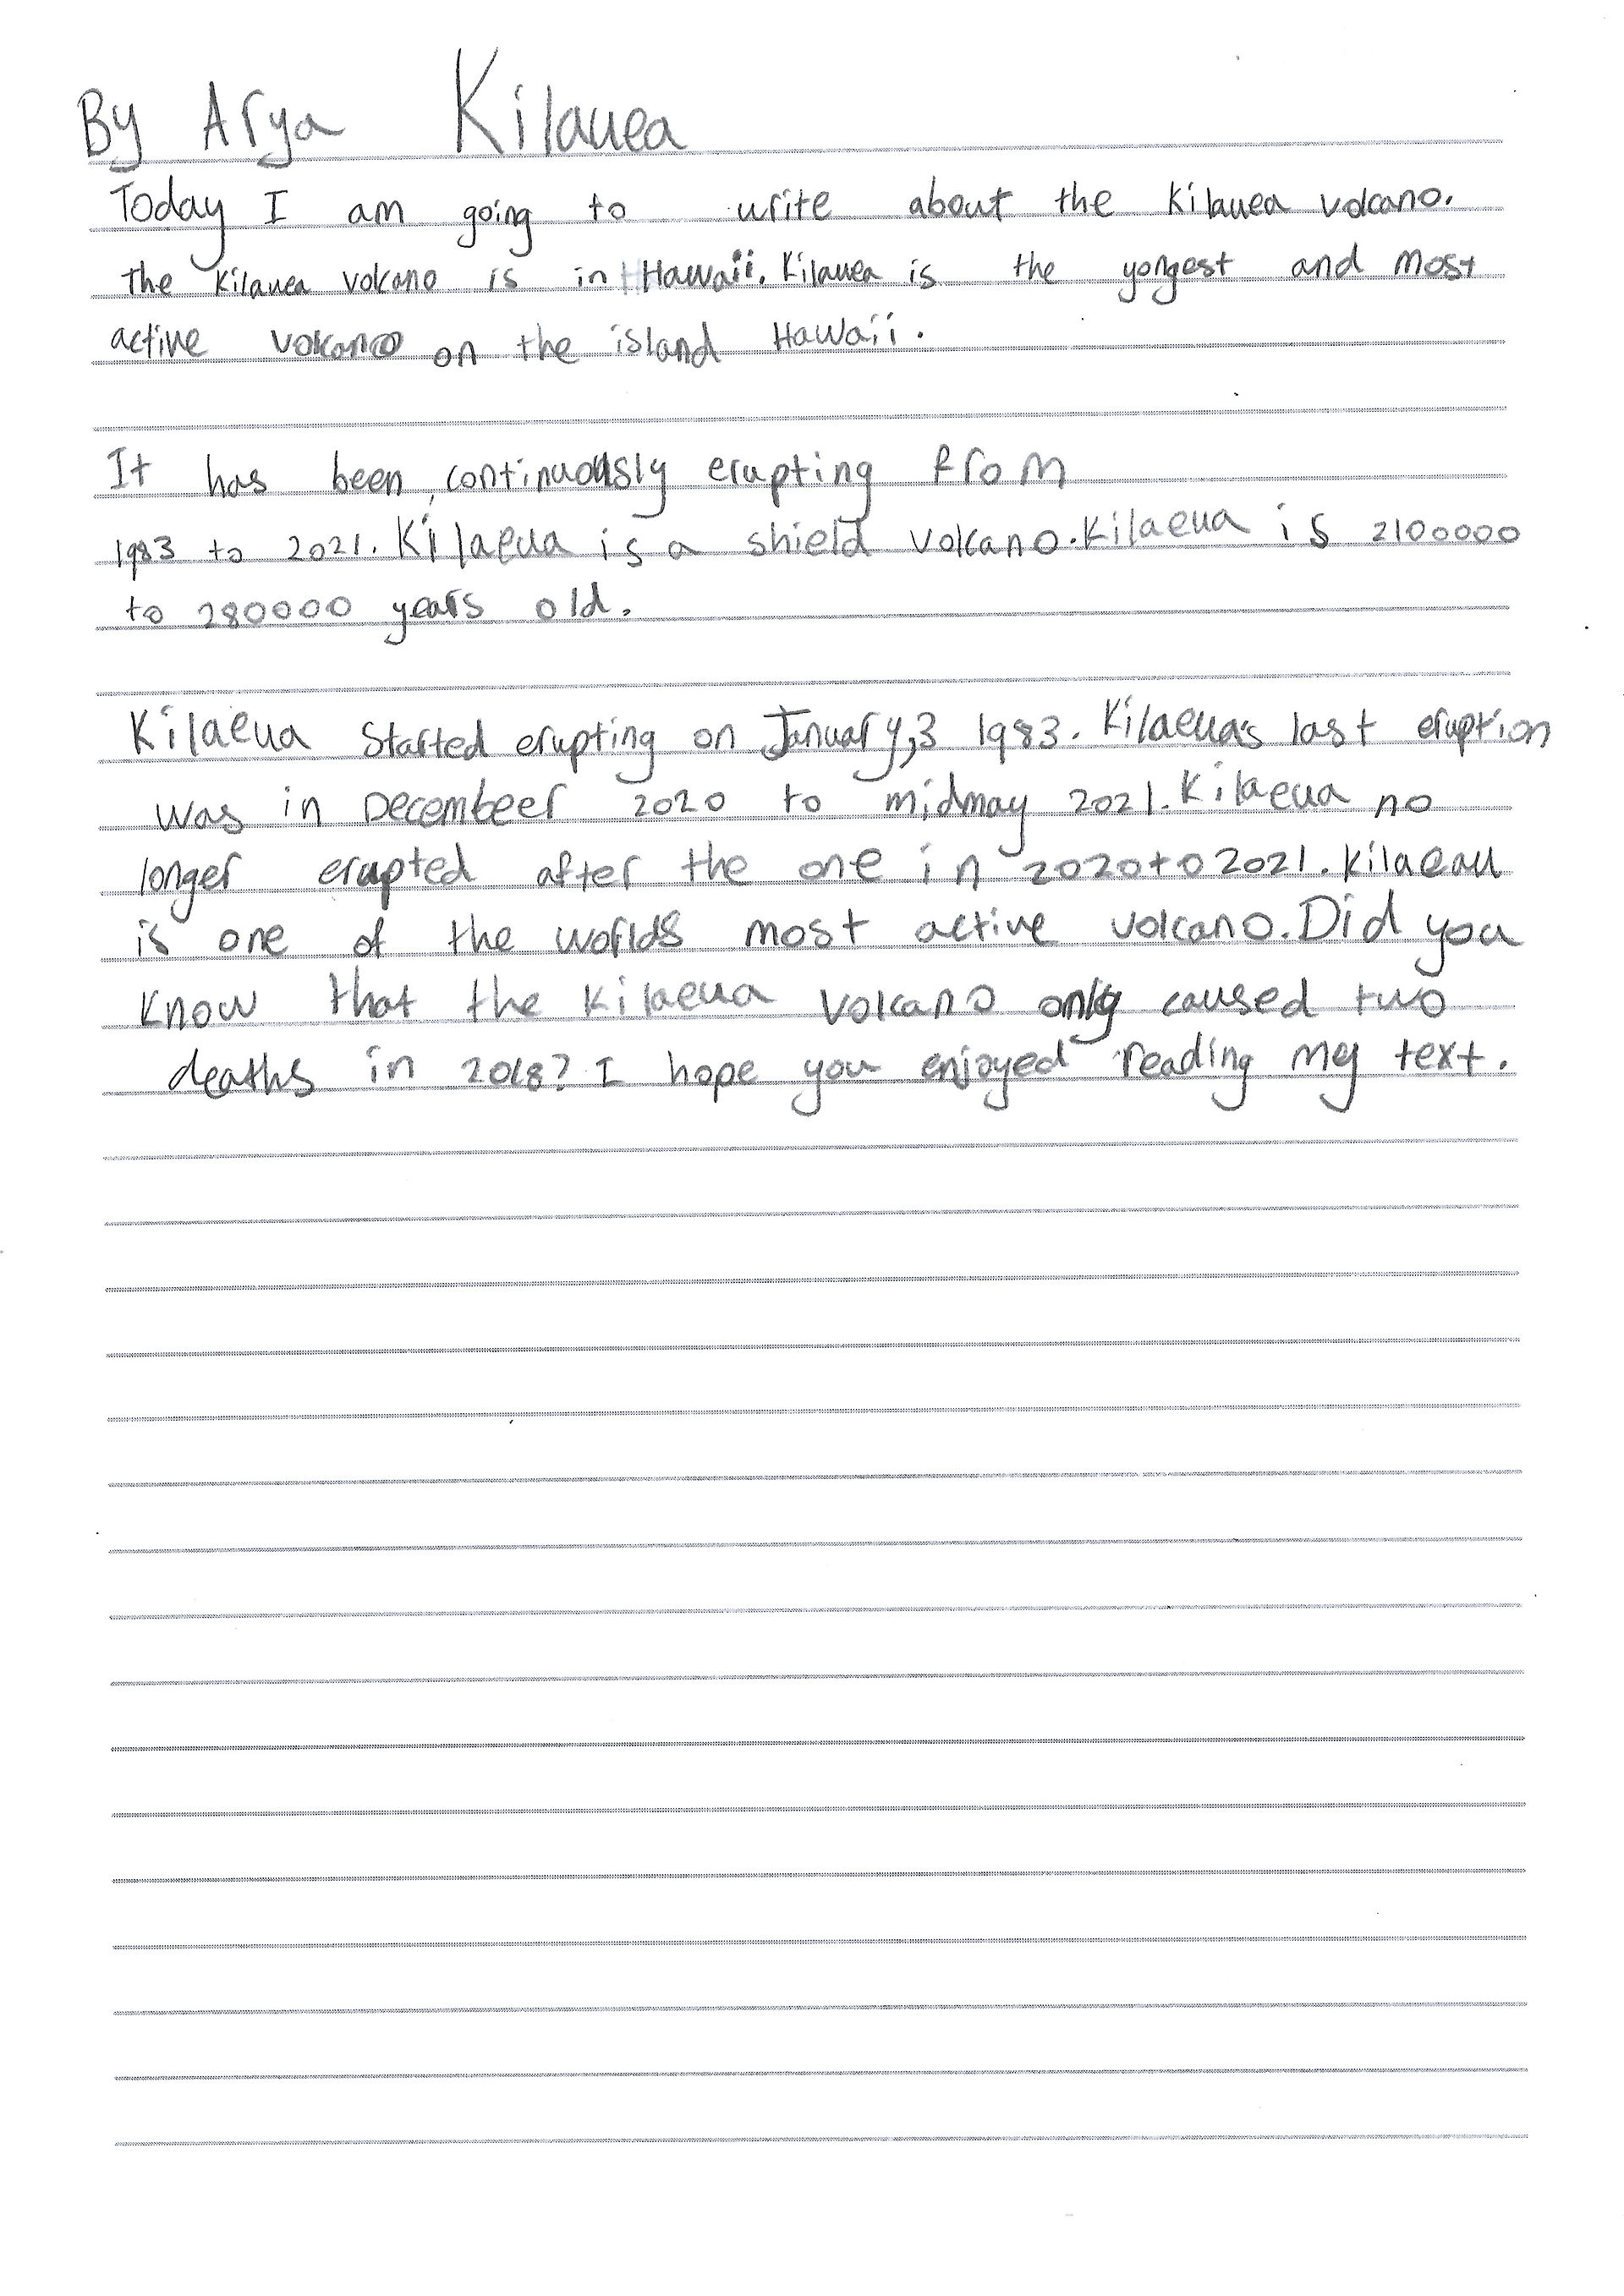 By Arya Kilauea
Today I am going to write about the Kilauea volcano.
The Kilauea volcano is in Hawaii. Kilauea is the yongest and most
active volcano on the island Hawaii.
It has been continuously erupting from
1983 to 2021. Kilaeua is a shield volcano. Kilaeua is 2100000
to 280000 years old.
Kilaeua started erupting on January,3 1983. Kilaeua's last eruption
was in Decembeer 2020 to midmay 2021. Kilaeua no
longer erupted after the one in 2020 to 2021. Kilaeau
is one of the worlds most active volcano. Did you
know that the Kilaeua volcano only caused two
deaths in 2018? I hope you enjoyed reading my text.